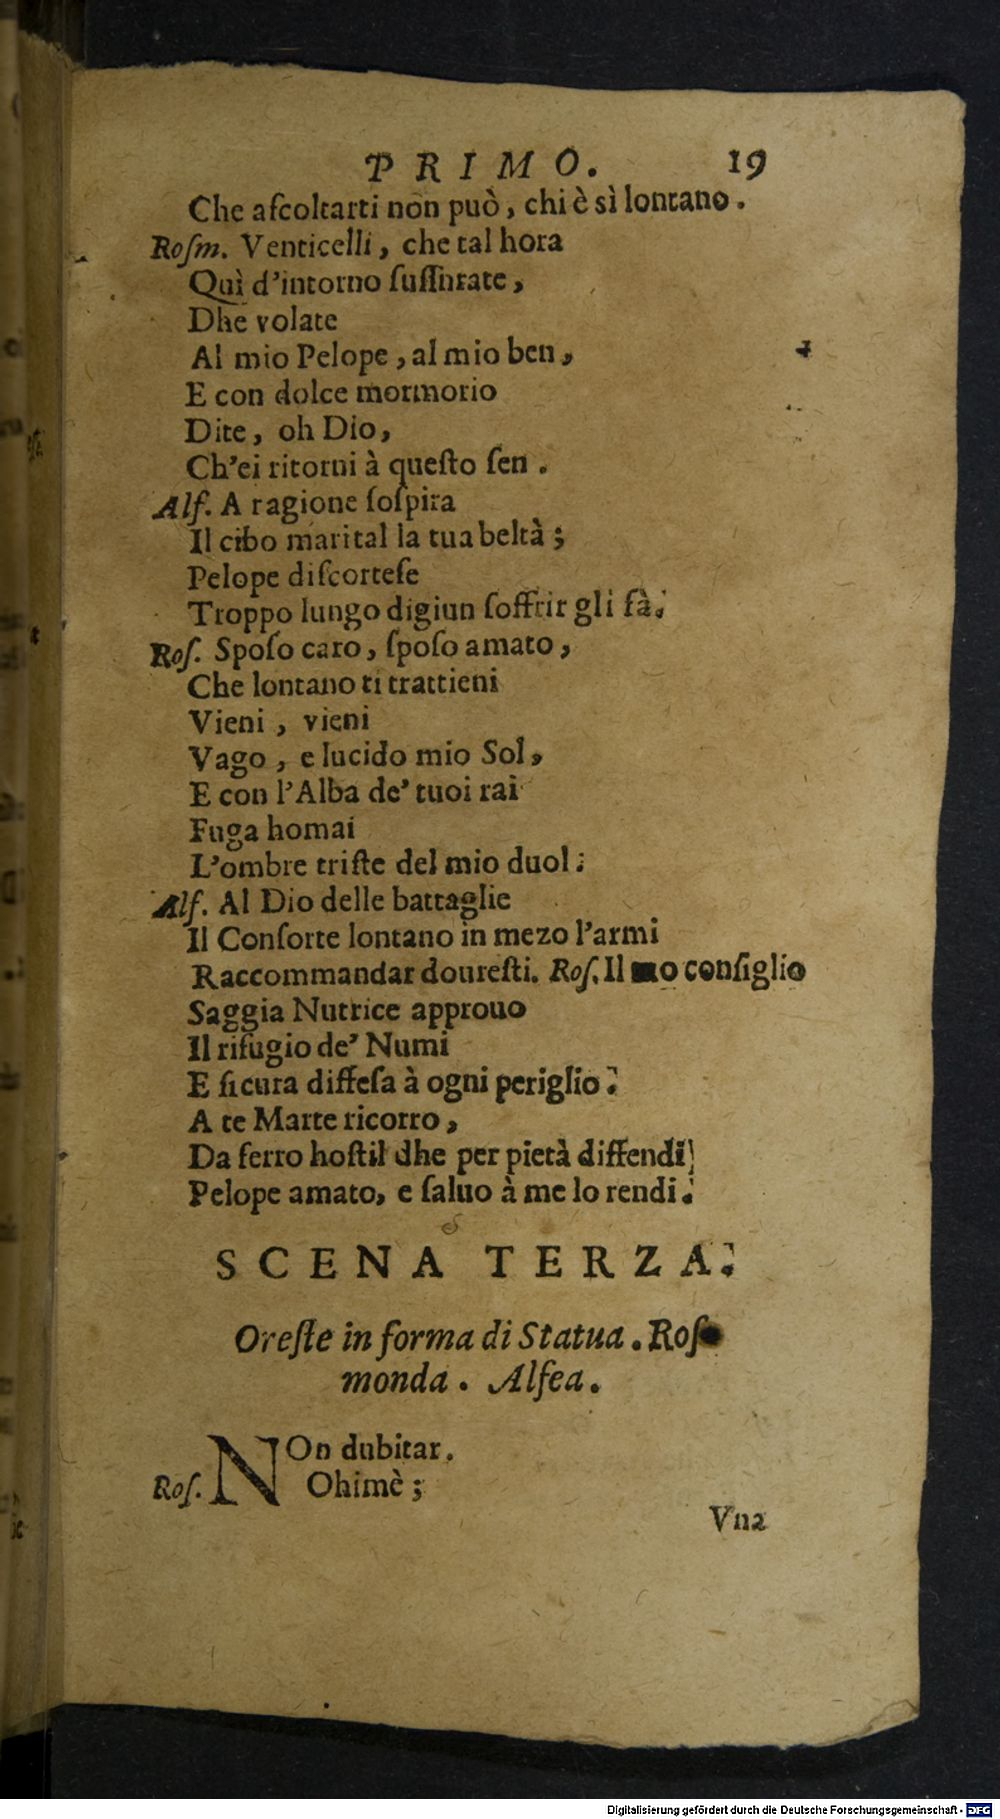 PRIMO. 19
Che aſcoltarti non può, chi è sì lontano.
Roſm. Venticelli, che tal hora
Quì d'intorno ſuſſurate,
Dhe volate
Al mio Pelope, al mio ben,
E con dolce mormorio
Dite, oh Dio,
Ch'ei ritorni à queſto ſen.
Alf. A ragione ſoſpira
Il cibo marital la tua beltà;
Pelope diſcorteſe
Troppo lungo digiun ſoffrir gli fà.
Roſ. Spoſo caro, ſpoſo amato,
Che lontano ti trattieni
Vieni, vieni
Vago, e lucido mio Sol,
E con l'Alba de' tuoi rai
Fuga homai
L'ombre triſte del mio duol.
Alf. Al Dio delle battaglie
Il Conſorte lontano in mezo l'armi
Raccommandar doureſti. Roſ. Il conſiglio
Saggia Nutrice approuo
Il rifugio de' Numi
E ſicura diffeſa à ogni periglio.
A te Marte ricorro,
Da ferro hoſtil dhe per pietà diffendi
Pelope amato, e ſaluo à me lo rendi.
SCENA TERZA.
Oreſte in forma di Statua. Roſ
monda. Alfea.
NOn dubitar.
Roſ. Ohimè;
Vna
Digitalisierung gefördert durch die Deutsche Forschungsgemeinschaft - DFG